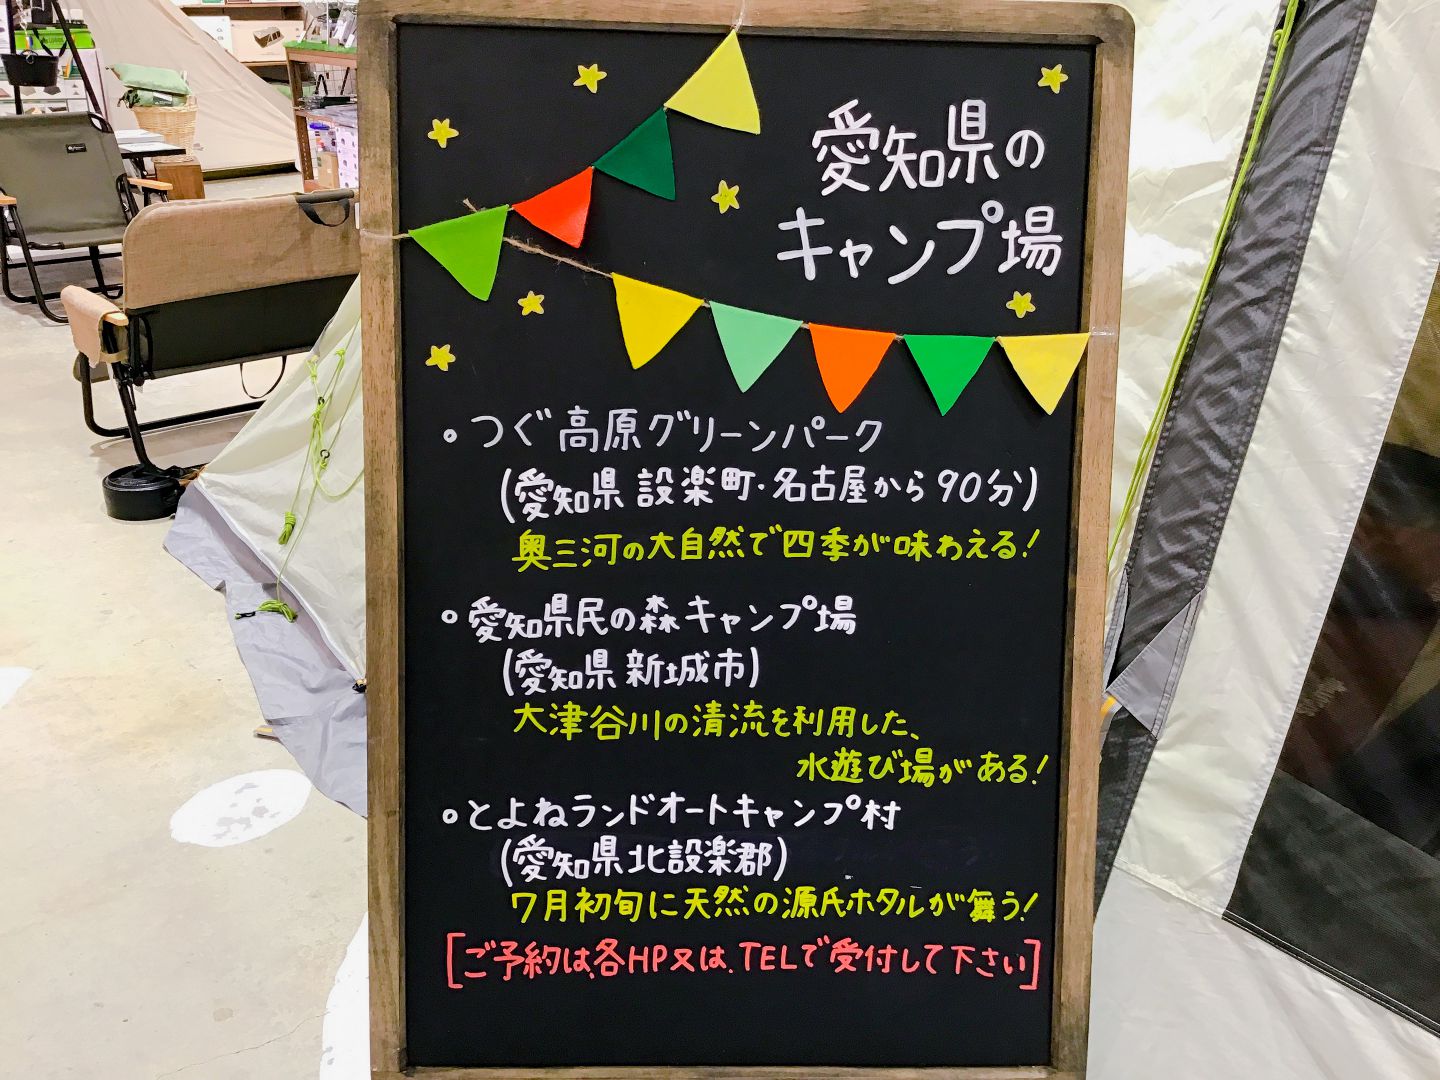 愛知県の
キャンプ場
○つぐ高原グリーンパーク
(愛知県 設楽町・名古屋から90分)
奥三河の大自然で四季が味わえる!
○愛知県民の森キャンプ場
(愛知県 新城市)
大津谷川の清流を利用した、
水遊び場がある!
○とよねランドオートキャンプ村
(愛知県北設楽郡)
7月初旬に天然の源氏ホタルが舞う!
[ご予約は、各HP又は、TELで受付して下さい]